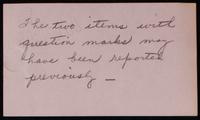 The two items with
question marks may
have been reported
previously —